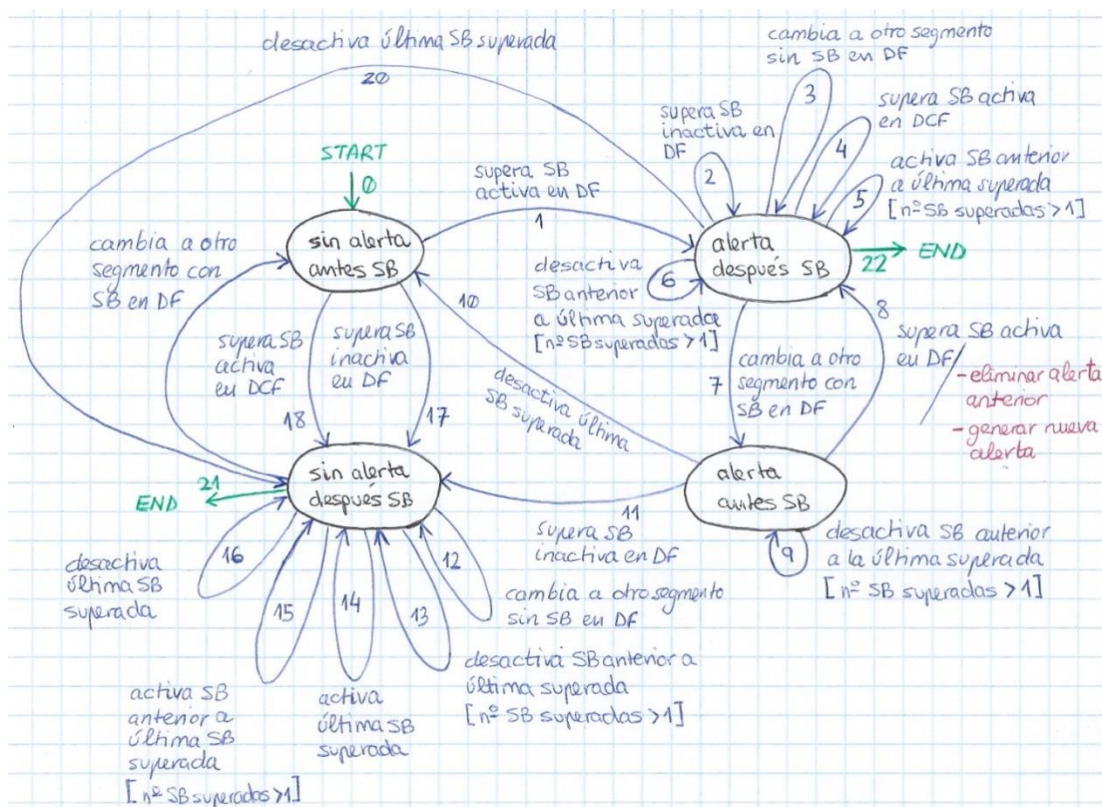 desactiva última SB superada
20
cambia a otro segmento
sin SB en DF
3
supera SB
inactiva en
DF
2
supera SB activa
en DCF
4
activa SB anterior
a última superada
[nº SB superadas >1]
5
START
0
supera SB
activa en DF
1
sin alerta
antes SB
alerta
después SB
22
END
cambia a otro
segmento con
SB en DF
desactiva
SB anterior
a última superada
[nº SB superadas >1]
6
10
desactiva última
SB superada
supera SB
activa
en DCF
18
supera SB
inactiva
en DF
17
7
cambia a otro
segmento con
SB en DF
8
supera SB activa
en DF
- eliminar alerta
anterior
- generar nueva
alerta
21
END
sin alerta
después SB
alerta
antes SB
11
supera SB
inactiva en DF
9
desactiva SB anterior
a la última superada
[nº SB superadas >1]
16
desactiva
última SB
superada
15
14
13
12
cambia a otro segmento
sin SB en DF
desactiva SB anterior a
última superada
[nº SB superadas >1]
activa SB
anterior a
última SB
superada
[nº SB superadas >1]
activa
última SB
superada